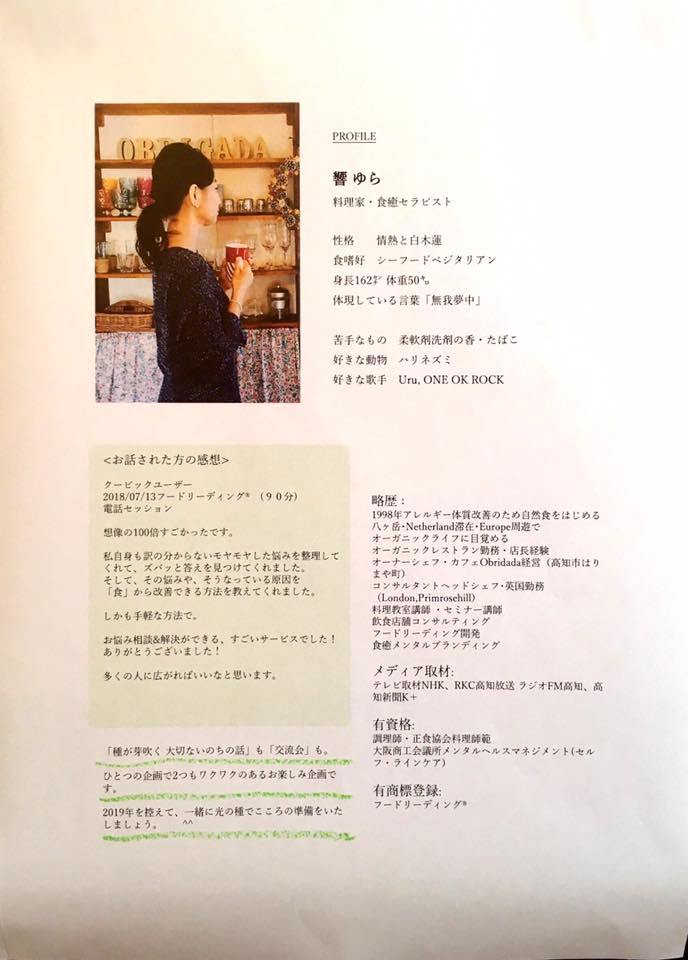 OBRIGADA
PROFILE
響 ゆら
料理家・食癒セラピスト
性格　情熱と白木蓮
食嗜好　シーフードベジタリアン
身長162㌢ 体重50㌔
体現している言葉「無我夢中」
苦手なもの　柔軟剤洗剤の香・たばこ
好きな動物　ハリネズミ
好きな歌手　Uru, ONE OK ROCK
<お話された方の感想>
クービックユーザー
2018/07/13フードリーディング®（９０分）
電話セッション
想像の100倍すごかったです。
私自身も訳の分からないモヤモヤした悩みを整理して
くれて、ズバッと答えを見つけてくれました。
そして、その悩みや、そうなっている原因を
「食」から改善できる方法を教えてくれました。
しかも手軽な方法で。
お悩み相談&解決ができる、すごいサービスでした！
ありがとうございました！
多くの人に広がればいいなと思います。
「種が芽吹く 大切ないのちの話」も「交流会」も。
ひとつの企画で2つもワクワクのあるお楽しみ企画で
す。
2019年を控えて、一緒に光の種でこころの準備をいた
しましょう。　^^
略歴：
1998年アレルギー体質改善のため自然食をはじめる
八ヶ岳･Netherland滞在･Europe周遊で
オーガニックライフに目覚める
オーガニックレストラン勤務・店長経験
オーナーシェフ・カフェObridada経営（高知市はり
まや町）
コンサルタントヘッドシェフ･英国勤務
（London,Primrosehill）
料理教室講師 ・セミナー講師
飲食店舗コンサルティング
フードリーディング開発
食癒メンタルブランディング
メディア取材:
テレビ取材NHK、RKC高知放送 ラジオFM高知、高
知新聞K＋
有資格:
調理師・正食協会料理師範
大阪商工会議所メンタルヘルスマネジメント(セル
フ・ラインケア)
有商標登録:
フードリーディング®